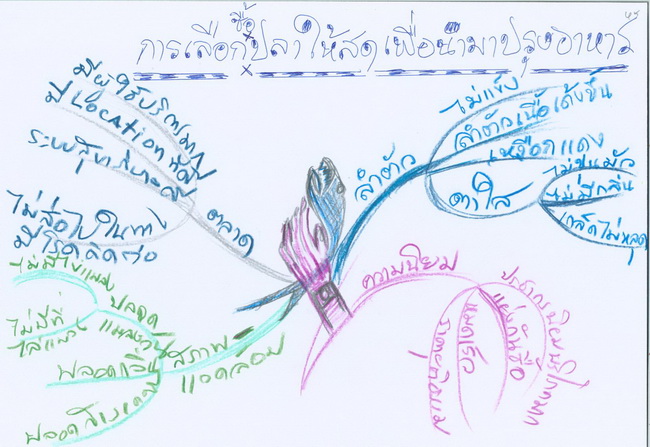 การเลือกซื้อปลาให้สดเพื่อนำมาปรุงอาหาร
มีผู้ใช้บริการมาก
มี Location ที่ดี
ระบบสุขาภิบาลดี
ไม่สื่อไปในทาง
มีโรคติดต่อ
ตลาด
ลำตัว
ไม่แข็ง
ลำตัวเนื้อเด้งขึ้น
เหงือกแดง
ตาใส
ไม่ขุ่นมัว
ไม่มีกลิ่น
เกล็ดไม่หลุด
ความนิยม
ประชาชนนิยมบริโภคมาก
แย่งกันซื้อ
หมดเร็ว
สภาพ
แวดล้อม
ปลอด
แมลงวัน
ไม่มีไข่แมลง
ไม่มีที่
ไล่แมลง
ปลอดกลิ่น
ปลอดสิ่งเจือปน